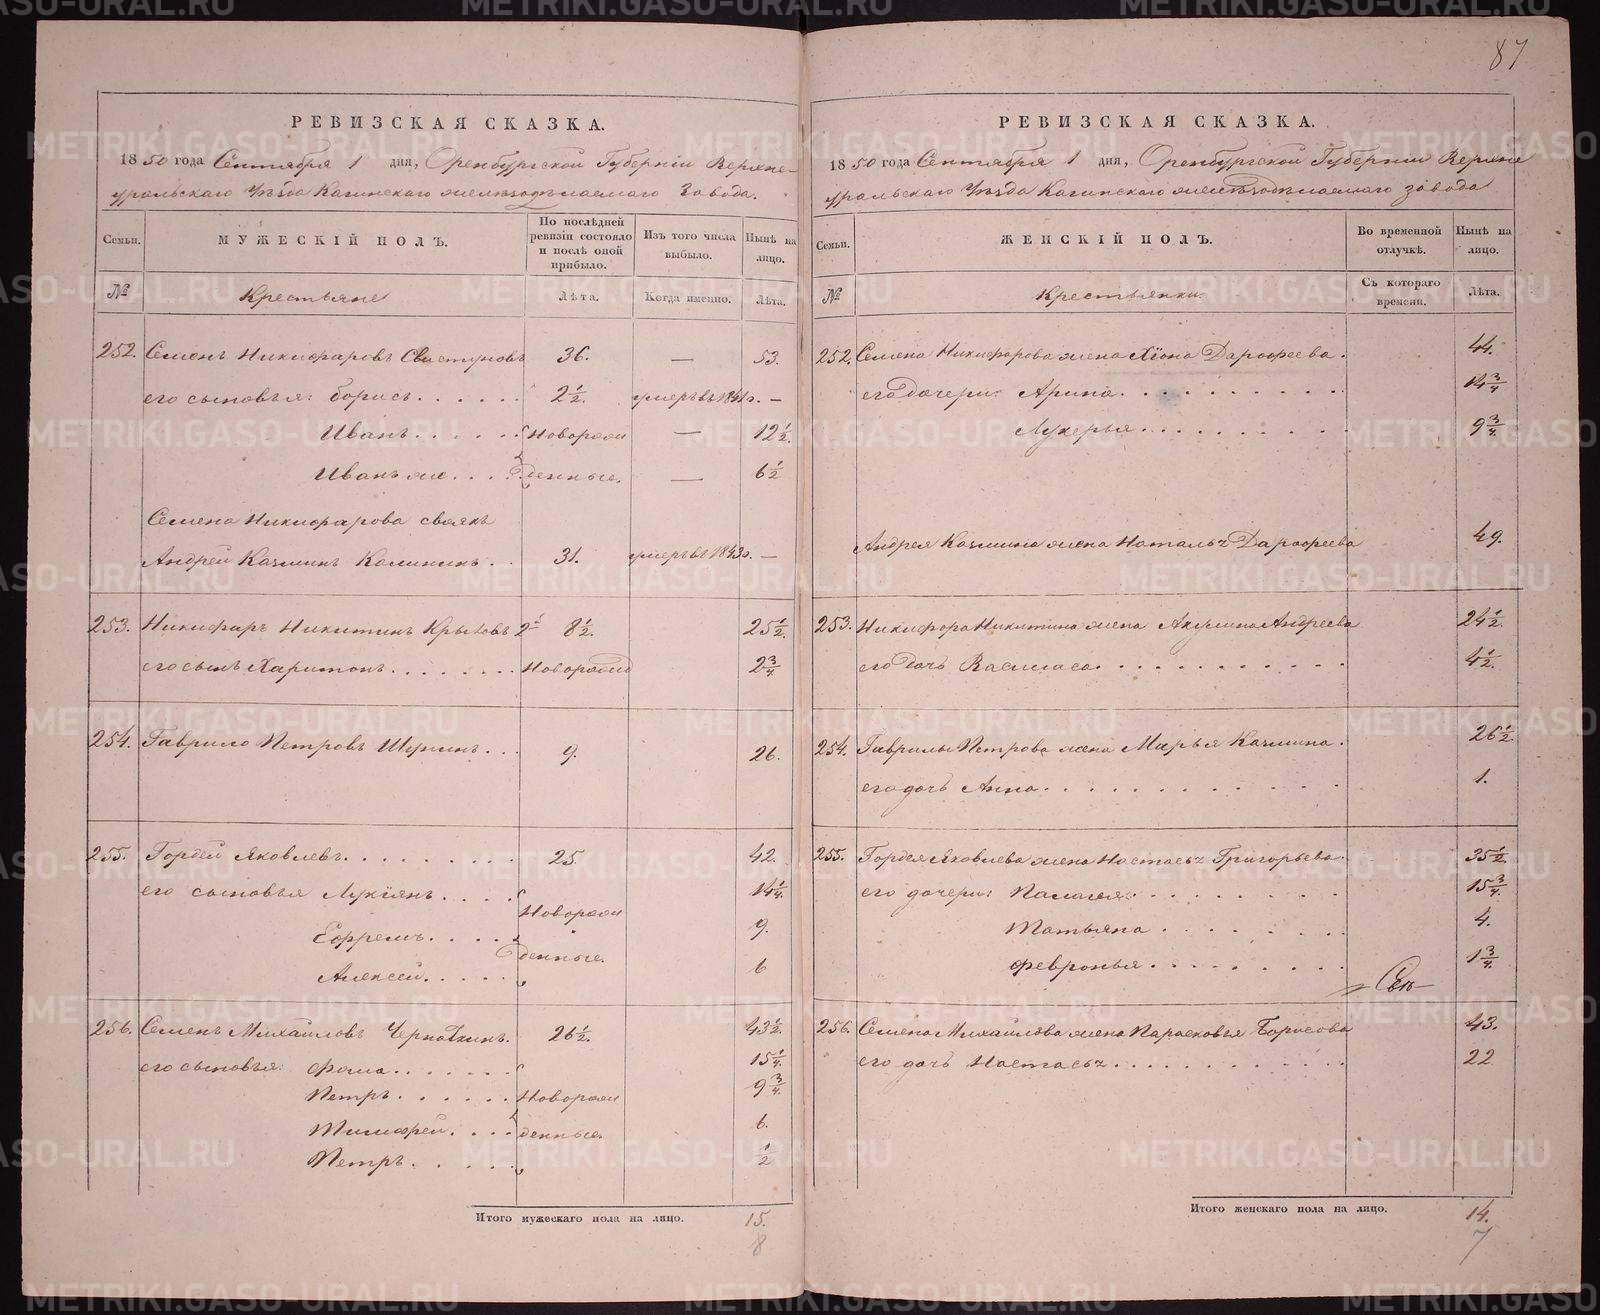 87
РЕВИЗСКАЯ СКАЗКА.
1850 года Сентября 1 дня, Оренбургской Губерніи Верхне-
уральскаго Уѣзда Кагинскаго железодѣлаемаго Завода.
Семьи. МУЖЕСКІЙ ПОЛЪ. По послѣдней ревизіи состояло и послѣ оной прибыло. Изъ того числа выбыло. Нынѣ на лицо.
№ Крестьяне Лѣта. Когда именно. Лѣта.
252. Семенъ Никифаровъ Свистуновъ 36. — 53.
его сыновья: Борисъ 2½. умеръ въ 184 г. —
Иванъ Новорож 12½.
Иванъ же денные. — 6½
Семена Никифарова своякъ
Андрей Казминъ Калининъ 31. умеръ въ 1843 г. —
253. Никифаръ Никитинъ Крыковъ 2й 8½. 25½.
его сынъ Харитонъ Новорожд 2¾.
254. Гаврило Петровъ Шунинъ 9. 26.
255. Гордей Яковлевъ 25 42.
его сыновья Лукіянъ Новорож 14¼.
Ефремъ денные. 9.
Алексей 6
256. Семенъ Михайловъ 26½. 43½.
его сыновья: Фома 15¼.
Петръ Новорож 9¾.
Тимофей денные. 6.
Петръ ½
Итого мужескаго пола на лицо. 15.
8
РЕВИЗСКАЯ СКАЗКА.
1850 года Сентября 1 дня, Оренбургской Губерніи Верхне
уральскаго Уѣзда Кагинскаго железодѣлаемаго завода
Семьи. ЖЕНСКІЙ ПОЛЪ. Во временной отлучкѣ. Нынѣ на лицо.
№ Крестьянки. Съ котораго времени. Лѣта.
252. Семена Никифарова жена Хіона Дарофеева. 44.
его дочери: Арина 14¾
Лукерья 9¾.
Андрея Казмина жена Наталья Дарофеева 49.
253. Никифора Никитина жена Акулина Андреева 24½.
его дочь Василиса 4½.
254. Гаврилы Петрова жена Марья Казмина. 26½.
его дочь Анна 1.
255. Гордея Яковлева жена Настасья Григорьева. 35½.
его дочери: Палагея 15¾.
Татьяна 4.
Февронья 1¾.
256. Семена Михайлова жена Парасковья Борисова 43.
его дочь Настасья 22
Итого женскаго пола на лицо. 14.
7
METRIKI.GASO-URAL.RU